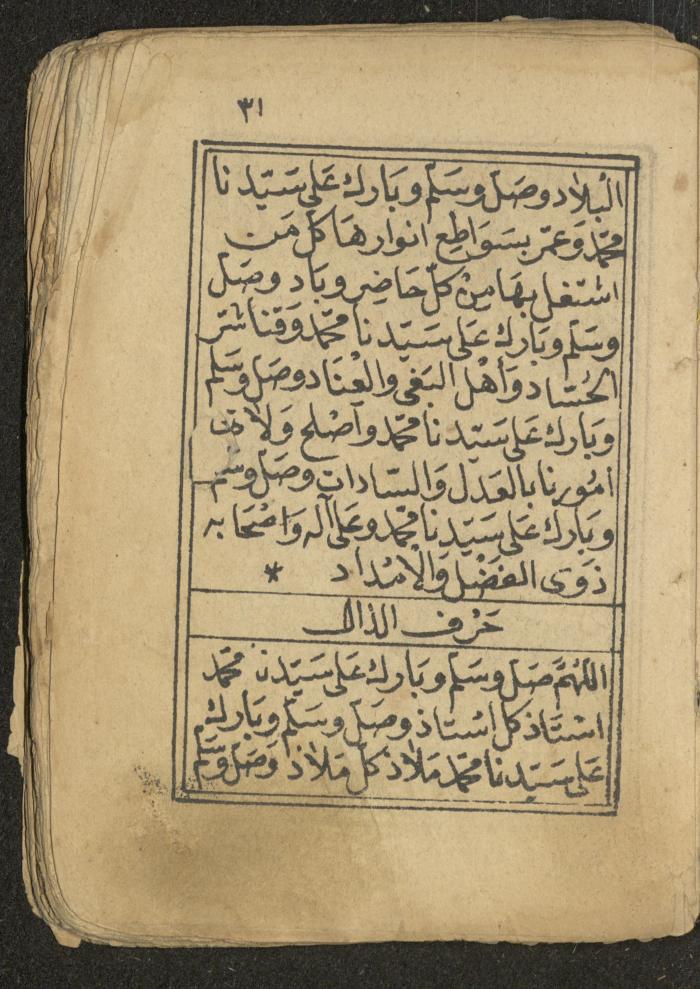 ٣١
البلاد وصل وسلم وبارك على سيدنا
محمد وعمر بسواطع انوارها كل من
اشتغل بها من كل حاضر وباد وصل
وسلم وبارك على سيدنا محمد وقنا شر
الحساد وأهل البغى والعناد وصل وسلم
وبارك على سيدنا محمد وأصلح ولاة
امورنا بالعدل والسادات وصل وسلم
وبارك على سيدنا محمد وعلى آله واصحابه
ذوى الفضل والإمداد *
حرف الذال
اللهم صل وسلم وبارك على سيدنا محمد
استاذ كل استاذ وصل وسلم وبارك
على سيدنا محمد ملاذ كل ملاذ وصل وسلم